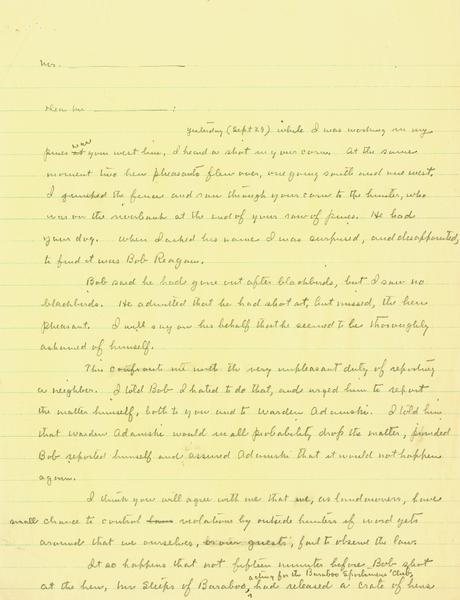 Mr. ____________
Dear Mr ____________ :
Yesterday (Sept 29) while I was working in my
pines near your west line, I heard a shot in your corn. At the same
moment two hen pheasants flew over, one going south and one west.
I jumped the fence and ran through your corn to the hunter, who
was on the riverbank at the end of your row of pines. He had
your dog. When I asked his name I was surprised, and disappointed,
to find it was Bob Reagan.
Bob said he had gone out after blackbirds, but I saw no
blackbirds. He admitted that he had shot at, but missed, the hen
pheasant. I will say on his behalf that he seemed to be thoroughly
ashamed of himself.
This confronts me with the very unpleasant duty of reporting
a neighbor. I told Bob I hated to do that, and urged him to report
the matter himself, both to you and to Warden Adamski. I told him
that Warden Adamski would in all probability drop the matter, provided
Bob reported himself and assured Adamski that it would not happen
again.
I think you will agree with me that we, as landowners, have
small chance to control violations by outside hunters if word gets
around that we ourselves, or our guests, fail to observe the law.
It so happens that not fifteen minutes before Bob shot
acting for the Baraboo Sportsmens' Club,
at the hen, Mr Sleips of Baraboo, had released a crate of hens